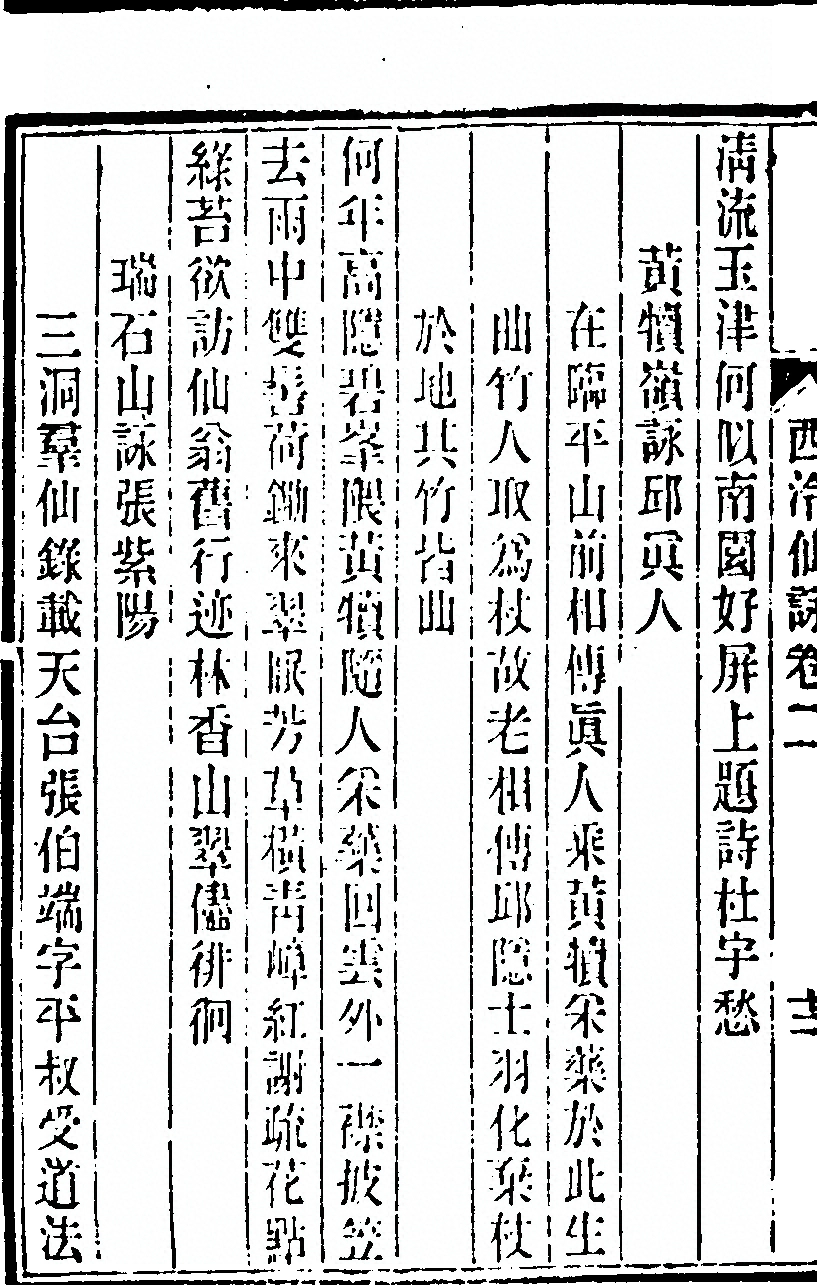 西泠仙詠卷二
十二
清流玉津何似南園好屏上題詩杜宇愁
黃犢嶺詠邱眞人
在臨平山前相傳眞人乘黃犢采藥於此生
曲竹人取爲杖故老相傳邱隱士羽化棄杖
於地其竹皆曲
何年高隱碧峯隈黃犢隨人采藥回雲外一𥰡披笠
去雨中雙髻荷鋤來翠眠芳草橫靑嶂紅謝疏花點
綠苔欲訪仙翁舊行迹林香山翠儘徘徊
瑞石山詠張紫陽
三洞羣仙錄載天台張伯端字平叔受道法